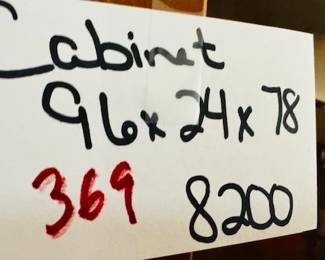 Cabinet
96x24x78
369 8200